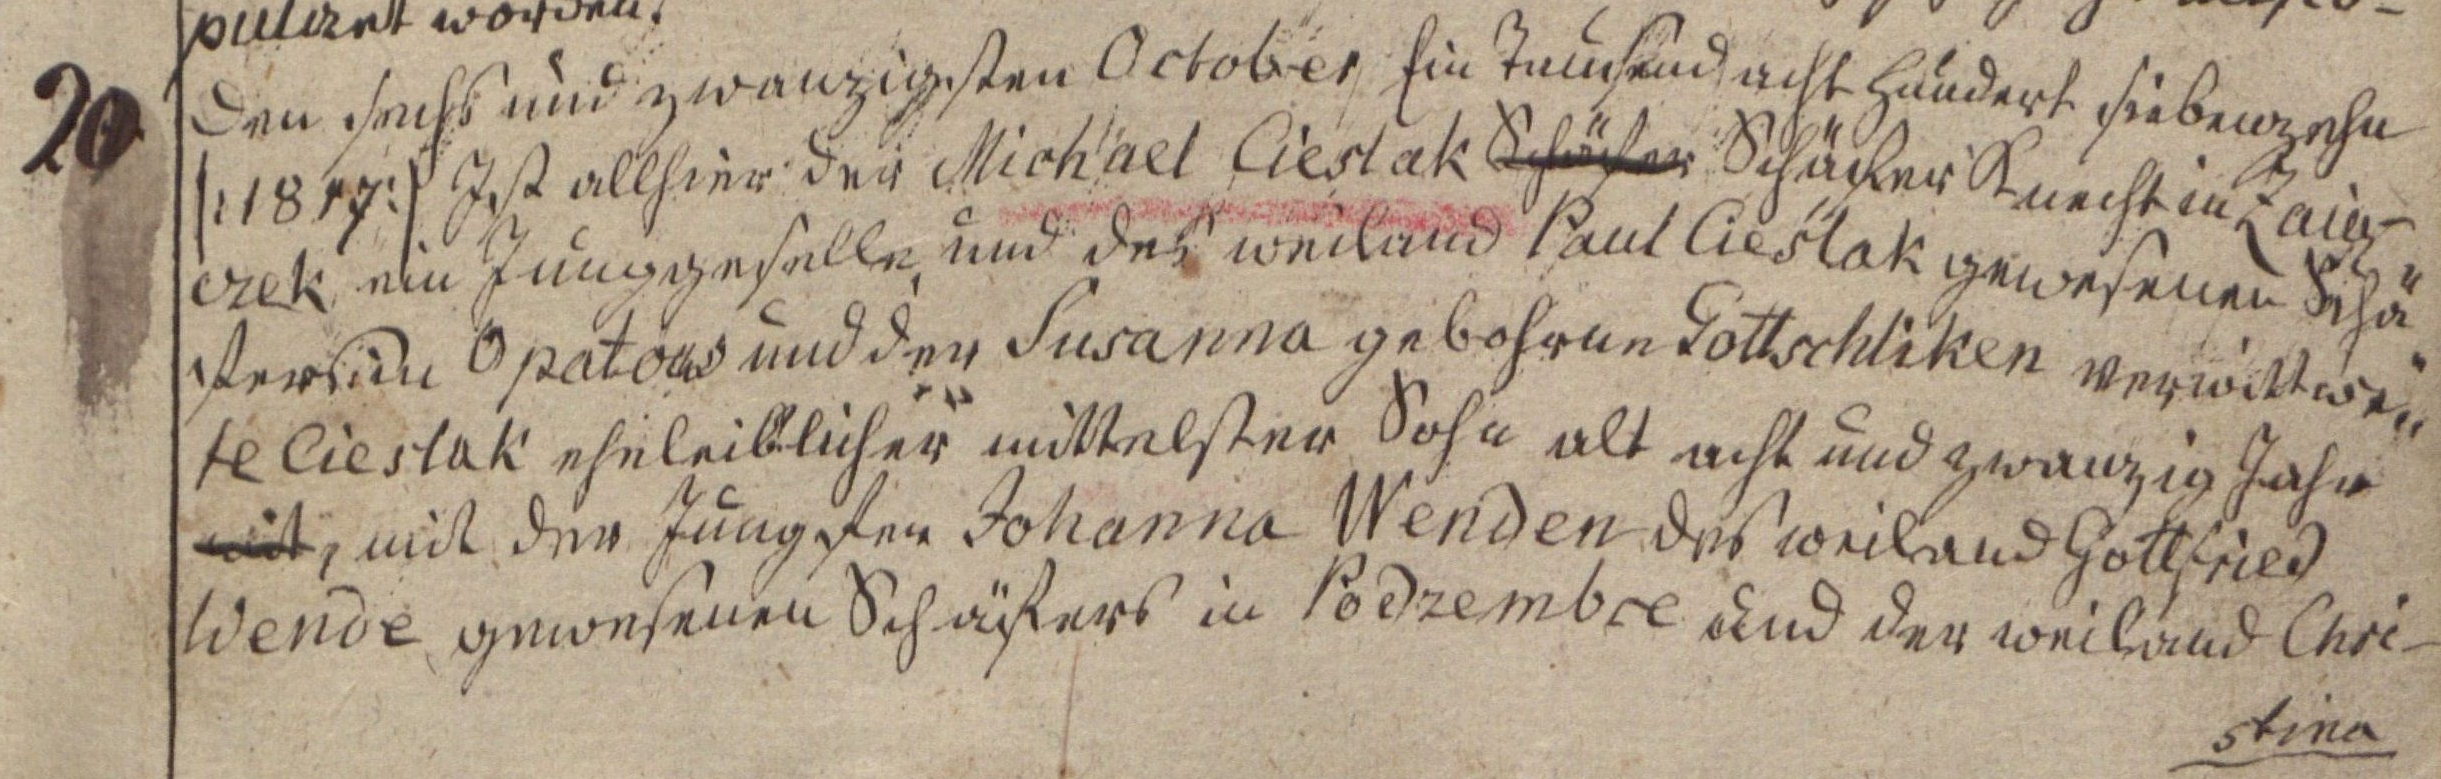 puliret worden.
20
Den sechs und zwanzigsten October Ein Tausend acht Hundert siebenzehn
|: 1817 :| Ist allhier der Michael Cieslak Schäfer Schäfer Knecht in Zain-
czek, ein Junggeselle, und des weiland Paul Cieślak gewesenen Schä-
fers in Opatow und der Susanna gebohrne Gottschliken verwittwe-
te Cieslak eheleiblicher mittelster Sohn alt acht und zwanzig Jahr
mit, mit der Jungfer Johanna Wenden des weiland Gottfried
Wende gewesenen Schäfers in Podzembce und der weiland Chri-
stina